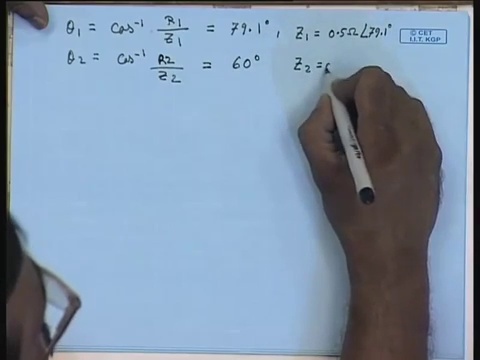 θ₁ = cos⁻¹ R₁/Z₁ = 79.1°, Z₁ = 0.5Ω∠79.1°
© CET
I.I.T. KGP
θ₂ = cos⁻¹ R₂/Z₂ = 60° Z₂ =